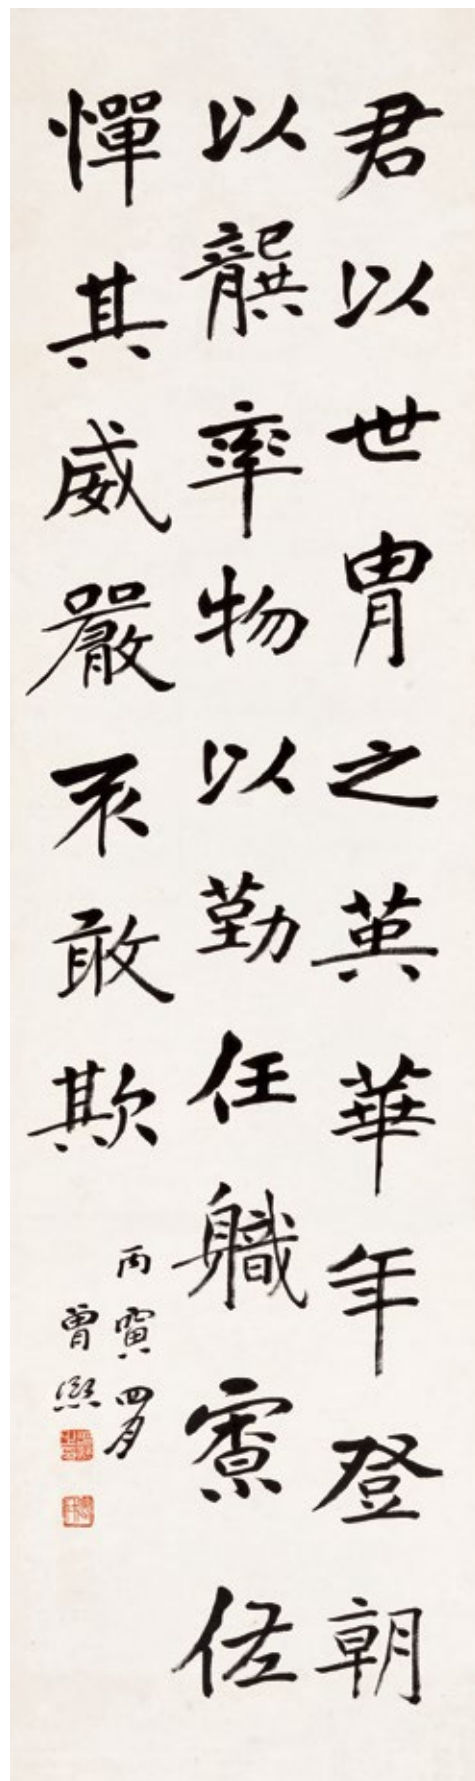 君以世胄之英華年登朝
以龔率物以勤任軄寮佐
憚其威嚴不敢欺
丙寅四月
曾熙